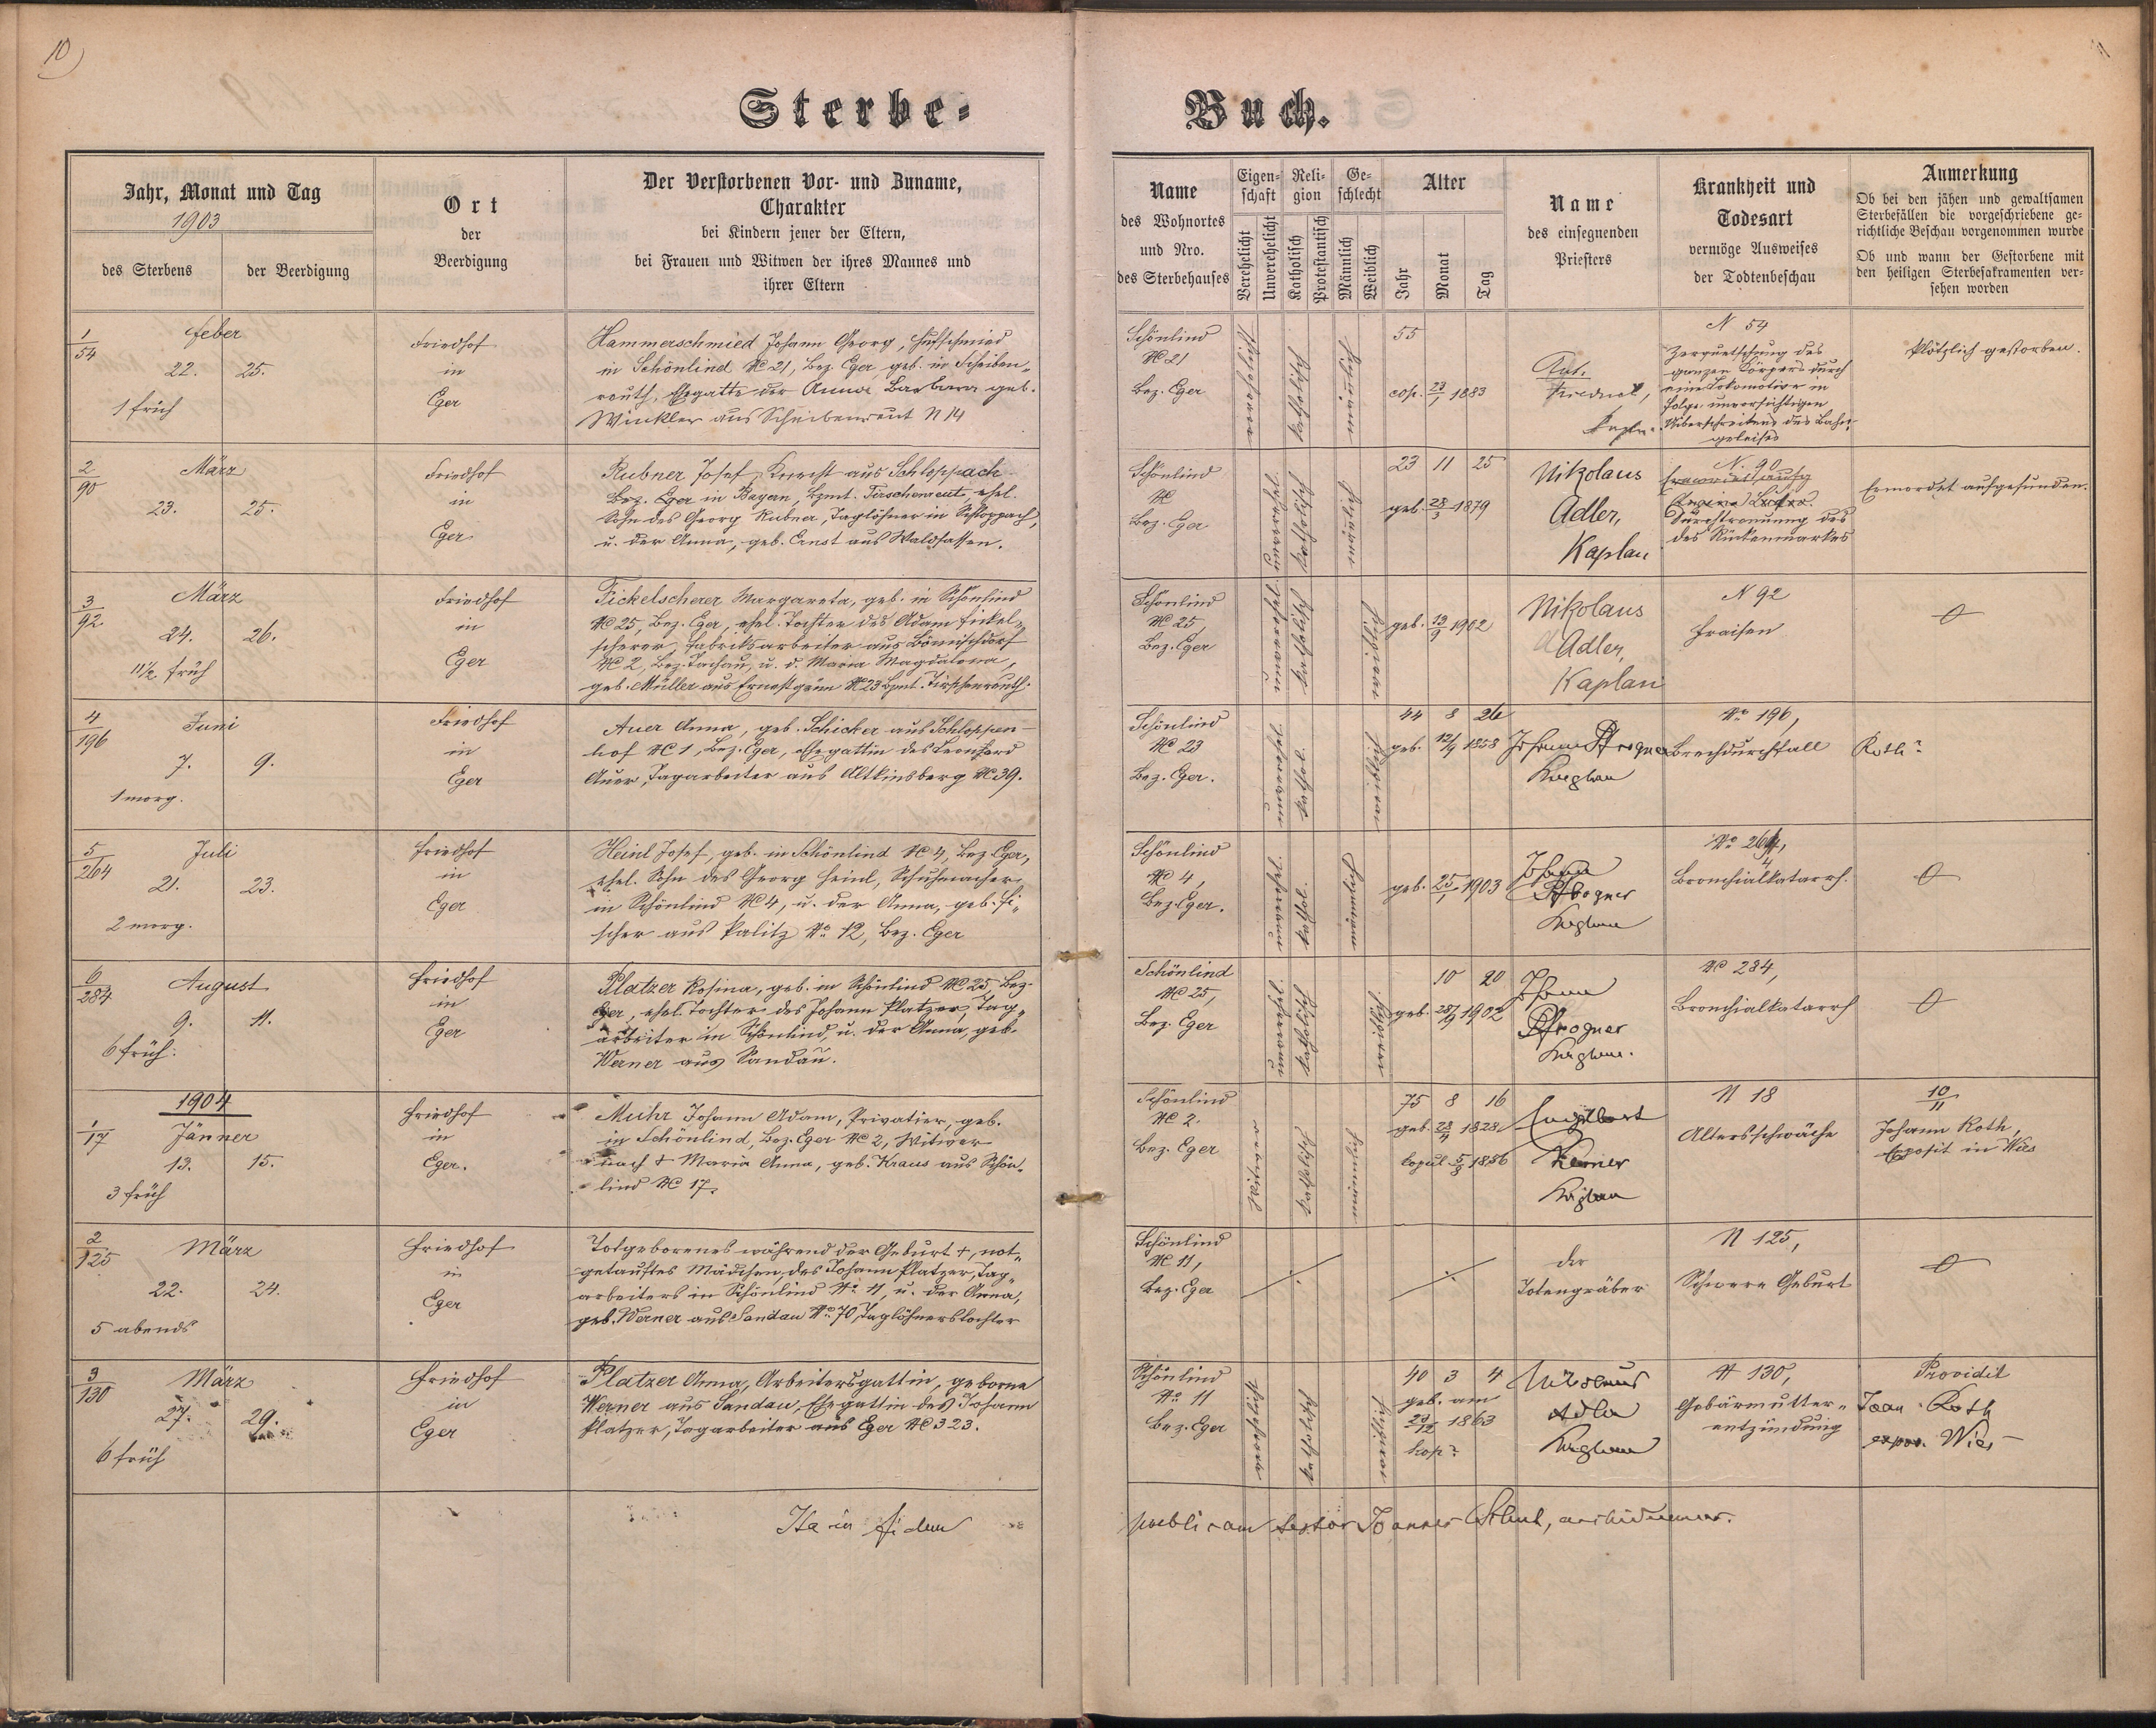 10)
11
Sterbe-
Buch.
Jahr, Monat und Tag
1903
des Sterbens
der Beerdigung
Ort
der
Beerdigung
Der Verstorbenen Vor- und Zuname,
Charakter
bei Kindern jener der Eltern,
bei Frauen und Witwen der ihres Mannes und
ihrer Eltern
Name
des Wohnortes
und Nro.
des Sterbehauses
Eigen-
schaft
Verehelicht
Unverehelicht
Reli-
gion
Katholisch
Protestantisch
Ge-
schlecht
Männlich
Weiblich
Alter
Jahr
Monat
Tag
Name
des einsegnenden
Priesters
Krankheit und
Todesart
vermöge Ausweises
der Todtenbeschau
Anmerkung
Ob bei den jähen und gewaltsamen
Sterbefällen die vorgeschriebene ge-
richtliche Beschau vorgenommen wurde
Ob und wann der Gestorbene mit
den heiligen Sterbesakramenten ver-
sehen worden
1/54
Feber
22. 25.
1 früh
Friedhof
in
Eger
Hammerschmied Johann Georg, Hufschmied
in Schönlind NC 21, Bez. Eger geb. in Scheiben-
reuth, Ehegatte der Anna Barbara geb.
Winkler aus Scheibenreut N 14
Schönlind
NC 21
Bez. Eger
verehelicht
katholisch
männlich
55
cop. 23/1 1883
Ant.
N 54
Zerquetschung des
ganzen Körpers durch
eine Lokomotive in
folge unvorsichtigen
Überschreitens des Bahn-
geleises
Plötzlich gestorben.
2/90
März
23. 25.
Friedhof
in
Eger
Rubner Josef, Knecht aus Schloppach
Bez. Eger in Bayern, Bzmt. Tirschenreut, ehel.
Sohn des Georg Rubner, Taglöhner in Schloppach,
u. der Anna, geb. Ernst aus Waldsassen.
Schönlind
NC
Bez. Eger
unverehel.
katholisch
männlich
23 11 25
geb. 28/3 1879
Nikolaus
Adler,
Kaplan
N. 90
Durchtrennung des
des Rückenmarkes
Ermordet aufgefunden.
3/92
März
24. 26.
11½ früh
Friedhof
in
Eger
Fickelscherer Margareta, geb. in Schönlind
NC 25, Bez. Eger, ehel. Tochter des Adam Fickel-
scherer, Fabriksarbeiter aus Bömischdorf
NC 2, Bez. Tachau, u. d. Maria Magdalena,
geb. Müller aus Ernestgrün NC 23 Bzmt. Tirschenreuth.
Schönlind
NC 25,
Bez. Eger
unverehel.
katholisch
weiblich
geb. 13/9 1902
Nikolaus
Adler,
Kaplan
N 92
Fraisen
0
4/196
Juni
7. 9.
1 morg.
Friedhof
in
Eger
Auer Anna, geb. Schicker aus Schloppen-
hof NC 1, Bez. Eger, Ehegattin des Leonhard
Auer, Tagarbeiter aus Altkinsberg NC 39.
Schönlind
NC 23
Bez. Eger.
unverehel.
kathol.
weiblich
44 8 26
geb. 12/9 1858
Johann Pfrogner
Kaplan
No 196,
Brechdurchfall
Roth?
5/264
Juli
21. 23.
2 morg.
Friedhof
in
Eger
Heinl Josef, geb. in Schönlind NC 4, Bez. Eger,
ehel. Sohn des Georg Heinl, Schuhmacher
in Schönlind NC 4, u. der Anna, geb. Fi-
scher aus Palitz No 12, Bez. Eger
Schönlind
NC 4,
Bez. Eger.
unverehel.
kathol.
männlich
geb. 25/1 1903
Johann
Pfrogner
Kaplan
No 264,
Bronchialkatarrh.
0
6/284
August
9. 11.
6 früh.
Friedhof
in
Eger
Platzer Rosina, geb. in Schönlind NC 25, Bez.
Eger, ehel. Tochter des Johann Platzer, Tag-
arbeiter in Schönlind, u. der Anna, geb.
Werner aus Sandau.
Schönlind
NC 25,
Bez. Eger
unverehel.
katholisch
weiblich
10 20
geb. 20/9 1902
Johann
Pfrogner
Kaplan.
NC 284,
Bronchialkatarrh
0
1904
1/17
Jänner
13. 15.
3 früh
Friedhof
in
Eger.
Muhr Johann Adam, Privatier, geb.
in Schönlind, Bez. Eger NC 2, Witwer
nach + Maria Anna, geb. Kraus aus Schön-
lind NC 17.
Schönlind
NC 2.
Bez. Eger
Witwer
katholisch
männlich
75 8 16
geb. 28/4 1828
Copul. 5/8 1856
Engelbert
Kaplan
N 18
Altersschwäche
10/11
Johann Roth,
Exposit in Wies
2/125
März
22. 24.
5 abends
Friedhof
in
Eger
Totgeborenes während der Geburt +, not-
getauftes Mädchen, des Johann Platzer, Tag-
arbeiters in Schönlind No 11, u. der Anna,
geb. Werner aus Sandau No 70, Taglöhnerstochter
Schönlind
NC 11,
Bez. Eger
der
Totengräber
N 125,
Schwere Geburt
0
3/130
März
27. 29.
6 früh
Friedhof
in
Eger
Platzer Anna, Arbeitersgattin, geborne
Werner aus Sandau, Ehegattin des Johann
Platzer, Tagarbeiter aus Eger NC 323.
Schönlind
No 11
Bez. Eger
verehelicht
katholisch
weiblich
40 3 4
geb. am
23/12 1863
kop?
Nikolaus
Adler
Kaplan
N 130,
Gebärmutter-
entzündung
Providit
Joan. Roth
expos. Wies
Ita in fidem
publicam testor Joannes